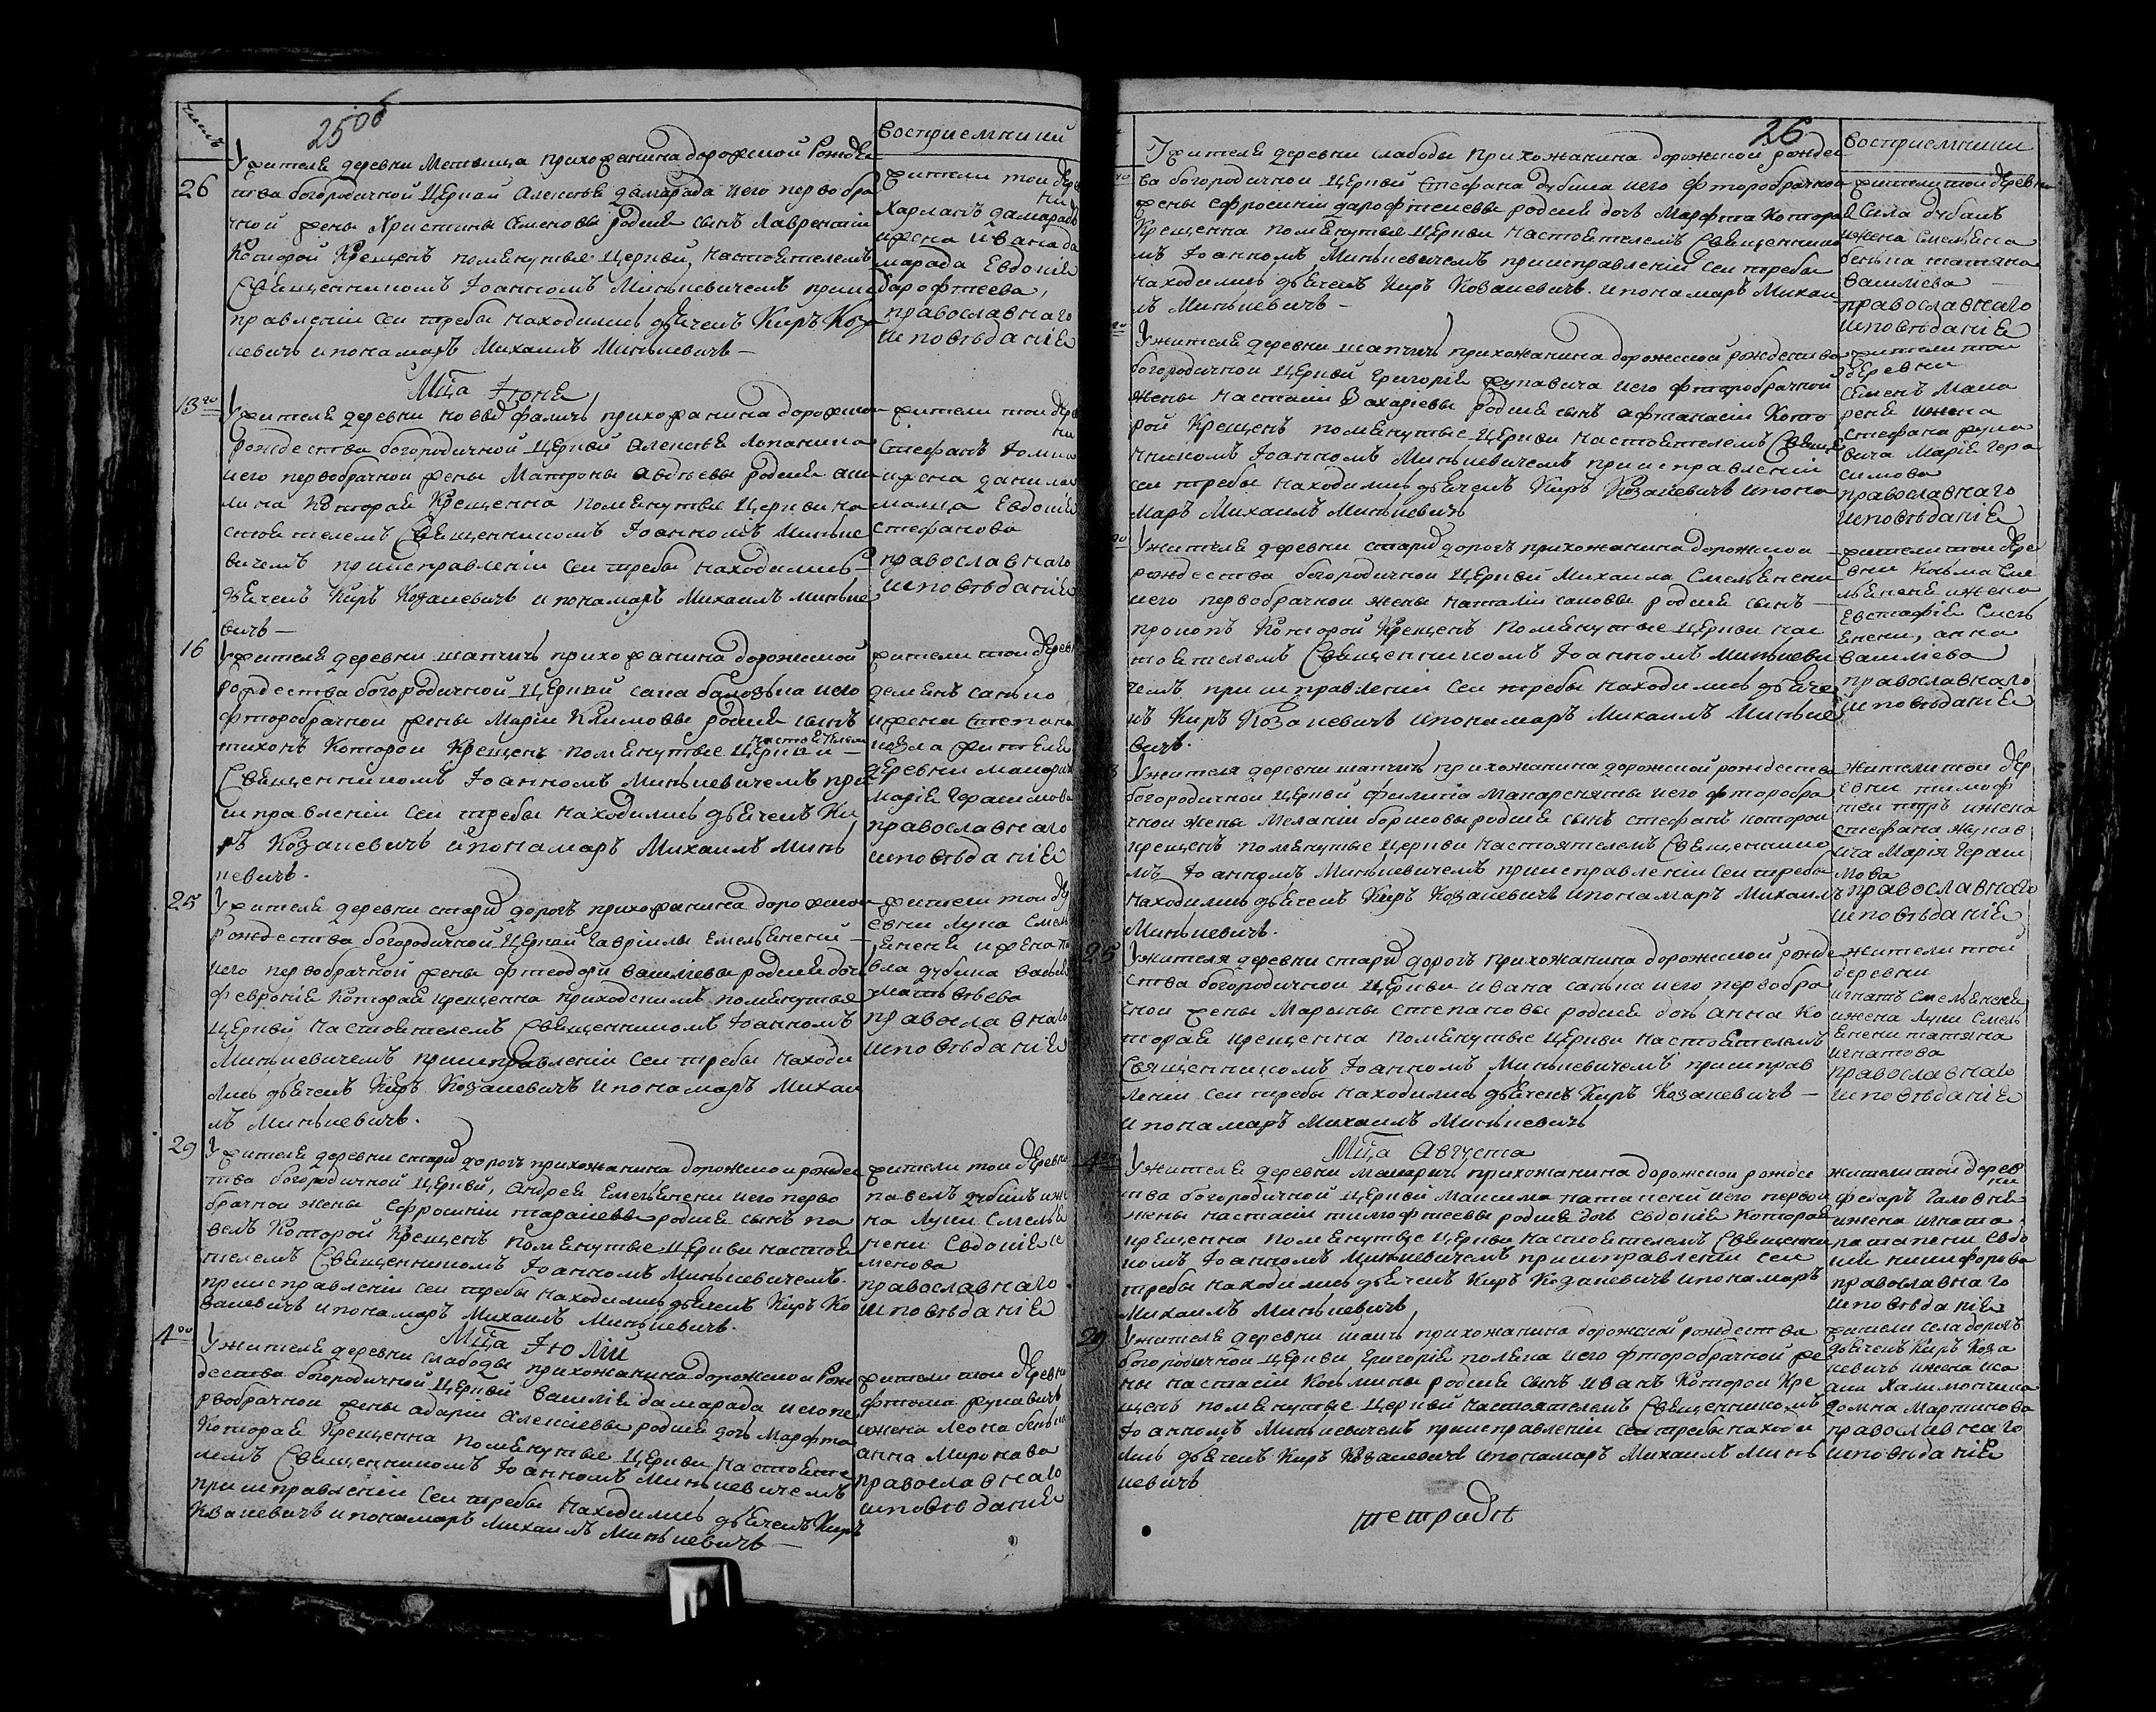 25об
восприемники
Ужителя деревни прихожанина дорожской Рожде
26
тва богородичной церкви Алексея дамарада иего первобра
чной жены Христины Семеновы родися сынъ Лаврентій
Которой Крещенъ помянутыя церкви настоятелемъ
Священникомъ Іоанномъ Минькевичемъ приис
правленіи сеи требы находились дьячекъ Киръ Коза
кевичъ ипонамаръ Михаилъ Минькевичъ —
жители тои дерев
ни
Харланъ дамарадъ
ижена Ивана да
марада Евдокія
дарофтеева,
православнаго
исповѣданія
Мца Іюня
13го
Ужителя деревни прихожанина дорожской
рождества богородичной церкви Алексея
иего первобрачной жены Матроны Авдѣевы родися аку
лина Которая Крещенна помянутыя Церкви на
стоятелемъ Священникомъ Іоанномъ Минькѣ
вичемъ приисправленіи сеи требы находились
дьячекъ Киръ Козакевичъ ипонамаръ Михаилъ минькѣ
вичъ —
жители тои дерев
ни
Стефанъ
ижена данила
Евдокія
стефанова
православнаго
исповѣданія
16
Ужителя деревни шапчичъ прихожанина дорожской
рождества богородичной Церкви сака иего
фторобрачной жены Маріи Климовы родися сынъ
тихонъ Которои Крещенъ помянутыя Церкви настоятелем
Священникомъ Іоанномъ Минькевичемъ при
исправленіи сеи требы находились дьячекъ Ки
ръ Козакевичъ ипонамаръ Михаилъ Минь
кевичъ.
жители тои дерев
ни
ижена Степана
жителя
деревни макаричъ
Марія Герасимова
православнаго
исповѣданія
25
Ужителя деревни старыхъ дорогъ прихожанина дорожской
рождества богородичной Церкви Гавріилы Емельянени
иего первобрачной жены фтеодоры василіевы родися дочь
февронія Которая крещенна помянутыя
Церкви настоятелемъ Священникомъ Іоанномъ
Минькевичемъ приисправленіи сеи требы находи
лись дьячекъ Киръ Козакевичъ ипонамаръ Михаи
лъ Минькевичъ.
жители тои дер
евни Лука Смель
яненя ижена па
вла дубика
матвѣева
православнаго
исповѣданія
29
Ужителя деревни старыхъ дорогъ прихожанина дорожскои рожде
тва богородичной Церкви, Андрея Емельянени иего перво
брачнои жены Ефросиніи тарасіевы родися сынъ па
велъ Которой Крещенъ помянутыя Церкви настоя
телемъ Священникомъ Іоанномъ Минькевичемъ.
приисправленіи сеи требы находились дьячекъ Киръ Ко
закевичъ ипонамаръ Михаилъ Минькевичъ.
жители тои деревни
павелъ дубикъ иже
на Луки Смелья
нени Евдокія се
менова
православнаго
исповѣданія
Мца Іюлій
4го
Ужителя деревни слабоды прихожанина дорожскои Рож
дества богородичной Церкви Василія дамарада иегопе
рвобрачнои жены Алексіевы родися дочь Марфта
Которая Крещенна помянутыя Церкви настояте
лемъ Священникомъ Іоанномъ Минькевичемъ
приисправленіи сеи требы находились дьячекъ Киръ
Козакевичъ ипонамаръ Михаилъ Минькевичъ —
жители тои деревни
фтома жукавичъ
ижена Леона
анна Миронава
православнаго
исповѣданія
26
восприемники
Ужителя деревни слабоды прихожанина дорожскои рожде
ва богородичнои церкви Стефана дубика иего фторобрачнои
жены Ефросиніи дарофтеевы родися дочь Марфта Котора
Крещенна помянутыя церкви настоятелемъ Священнико
мъ Іоанномъ Минькевичемъ приисправленіи сеи требы
находились дьячекъ Киръ Козакевичъ. ипонамаръ Михаи
лъ Минькевичъ —
жители тои деревни
Сила дубикъ
ижена
татяна
василіева
православнаго
исповѣданія
Ужителя деревни шапчичъ прихожанина дорожскои рождества
богородичнои церкви Григорія жукавича иего фторобрачной
жены настасіи Захаріевы родися сынъ афтанасіи Кото
рой Крещенъ помянутые церкви настоятелемъ Свяще
нникомъ Іоанномъ Минькевичемъ приисправленіи
сеи требы находились дьячекъ Киръ Козакевичъ ипона
маръ Михаилъ Минькевичъ
жители тои
деревни
Семенъ Мака
реня ижена
стефана жука
вича Марія Гера
симова
православнаго
исповѣданія
Ужителя деревни старыхъ дорогъ прихожанина дорожскои
рождества богородичнои церкви Михаила Смельянени
иего первобрачнои жены наталіи саковы родися сынъ
прокопъ Которой Крещенъ помянутые церкви нас
тоятелемъ Священникомъ Іоанномъ Минькеви
чемъ приисправленіи сеи требы находились дьяче
къ Киръ Козакевичъ ипонамаръ Михаилъ Минькѣ
вичъ.
жители тои дере
вни Козьма Сме
льяненя ижена
Евстафія Смель
янени, анна
василіева
православнаго
исповѣданія
Ужителя деревни шапчичъ прихожанина дорожской рождества
богородичной церкви филипа Макаренята иего фторобра
чнои жены Меланіи борисовы родися сынъ стефанъ которои
крещенъ помянутые церкви настоятелемъ Священнико
мъ Іоанномъ Минькевичемъ приисправленіи сеи требы
находились дьячекъ Киръ Козакевичъ ипонамаръ Михаилъ
Минькевичъ.
жители тои дер
евни тимоф
теи ижена
стефана жукав
ича Марія Гераси
мова
православнаго
исповѣданія
25
Ужителя деревни старыхъ дорогъ прихожанина дорожскои рожде
ства богородичнои церкви ивана санька иего первобра
чнои жены Марыны степановы родися дочь анна Ко
торая крещенна помянутые церкви настоятелемъ
Священникомъ Іоанномъ Минькевичемъ приисправ
леніи сеи требы находились дьячекъ Киръ Козакевичъ —
ипонамаръ Михаилъ Минькевичъ
жители тои
деревни
игнатъ Смельяненя
ижена Луки Смель
янени татяна
игнатова
православнаго
исповѣданія
Мца Августа
4го
Ужителя деревни Макаричъ прихожанина дорожскои рожде
ства богородичной церкви Максима иего первои
жены настасіи тимофтеевы родися дочь Евдокія Которая
крещенна помянутые церкви настоятелемъ Священни
комъ Іоанномъ Минькевичемъ приисправленіи сеи
требы находились дьячекъ Киръ Козакевичъ ипонамаръ
Михаилъ Минькевичъ
жители тои дерев
ни
федаръ Галовня
ижена игната
Евдо
кія никифорова
православнаго
исповѣданія
29
Ужителя деревни прихожанина дорожской рождества
богородичной церкви Григорія иего фторобрачной же
ны настасіи Козьмины родися сынъ иванъ Которои Кре
щенъ помянутые церкви настоятелемъ Священникомъ
Іоанномъ Минькевичемъ приисправленіи сеи требы находи
лись дьячекъ Киръ Козакевичъ ипонамаръ Михаилъ Минь
кевичъ
жители села дорогъ
дьячекъ Киръ Коза
кевичъ ижена иса
ака
домна Мартинова
православнаго
исповѣданія
тетрадь